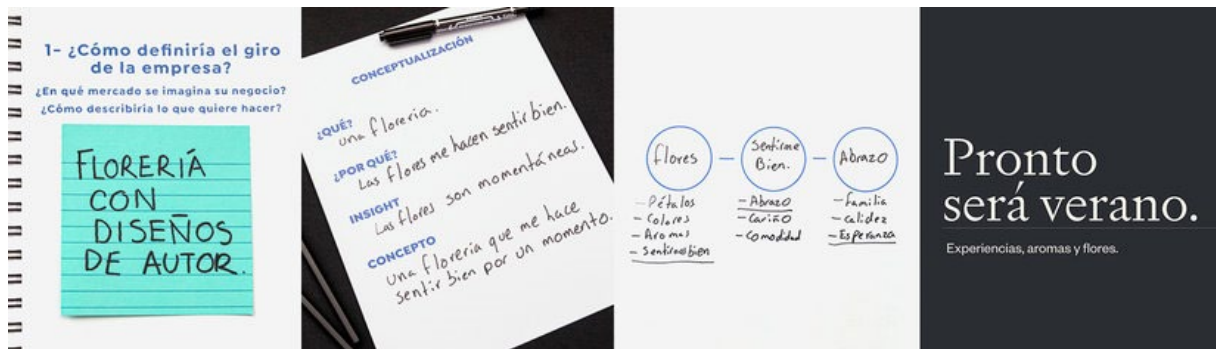 1- ¿Cómo definiría el giro
de la empresa?
¿En qué mercado se imagina su negocio?
¿Cómo describiría lo que quiere hacer?
FLORERÍA
CON
DISEÑOS
DE AUTOR.
CONCEPTUALIZACIÓN
¿QUÉ?
una florería.
¿POR QUÉ?
Las flores me hacen sentir bien.
INSIGHT
Las flores son momentáneas.
CONCEPTO
una florería que me hace
sentir bien por un momento.
flores — Sentirme — Abrazo
Bien.
- Pétalos
- Colores
- Aromas
- Sentirme bien
- Abrazo
- Cariño
- Comodidad
- Familia
- Calidez
- Esperanza
Pronto
será verano.
Experiencias, aromas y flores.